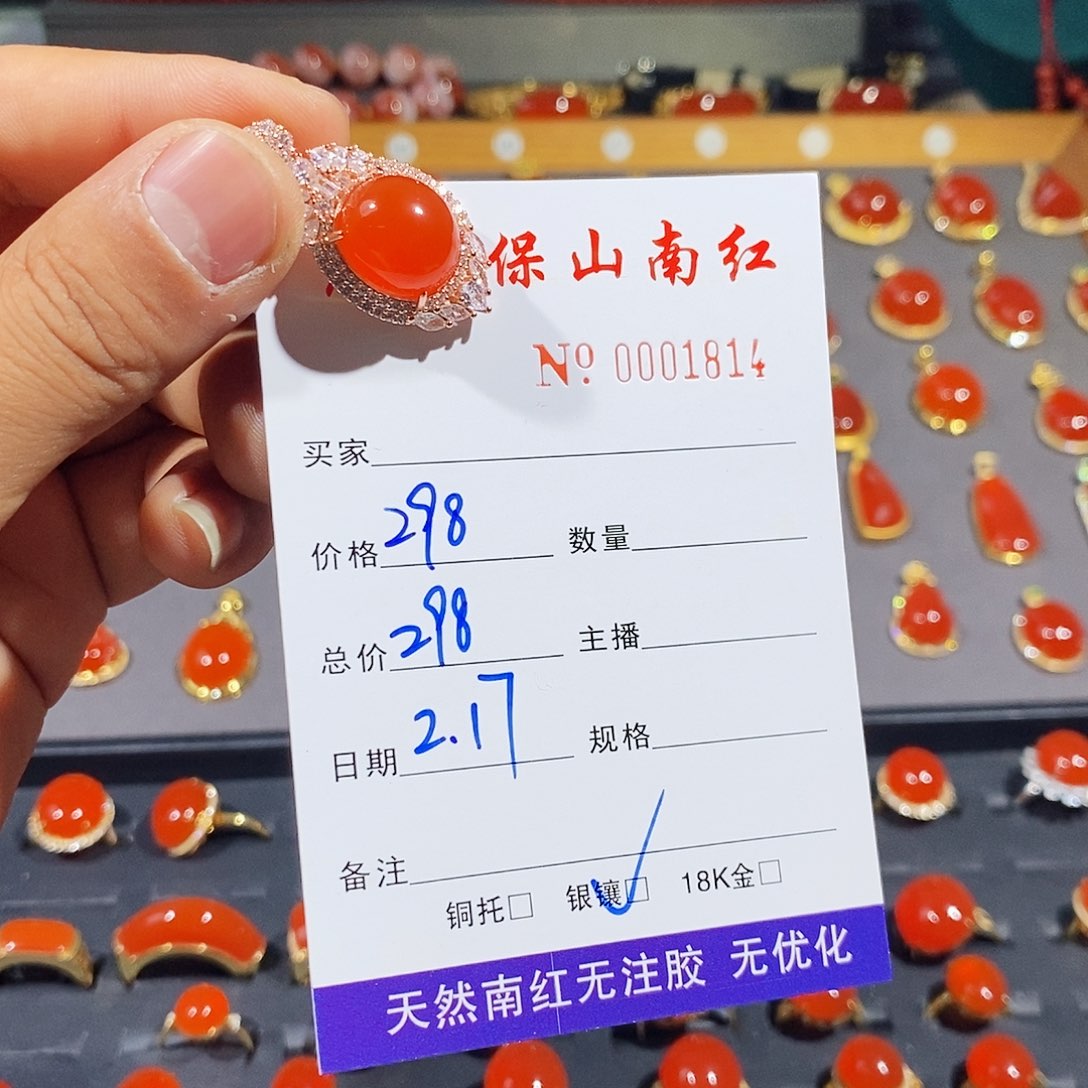 保山南红
Nº 0001814
买家
价格298 数量
总价298 主播
日期2.17 规格
备注
铜托□ 银镶☑ 18K金□
天然南红无注胶 无优化